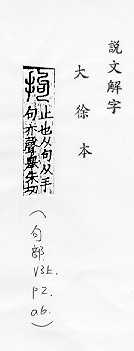 説文解字
大徐本
拘 止也从句从手
句亦聲舉朱切
(句部
V3上.
P2.
a6.)